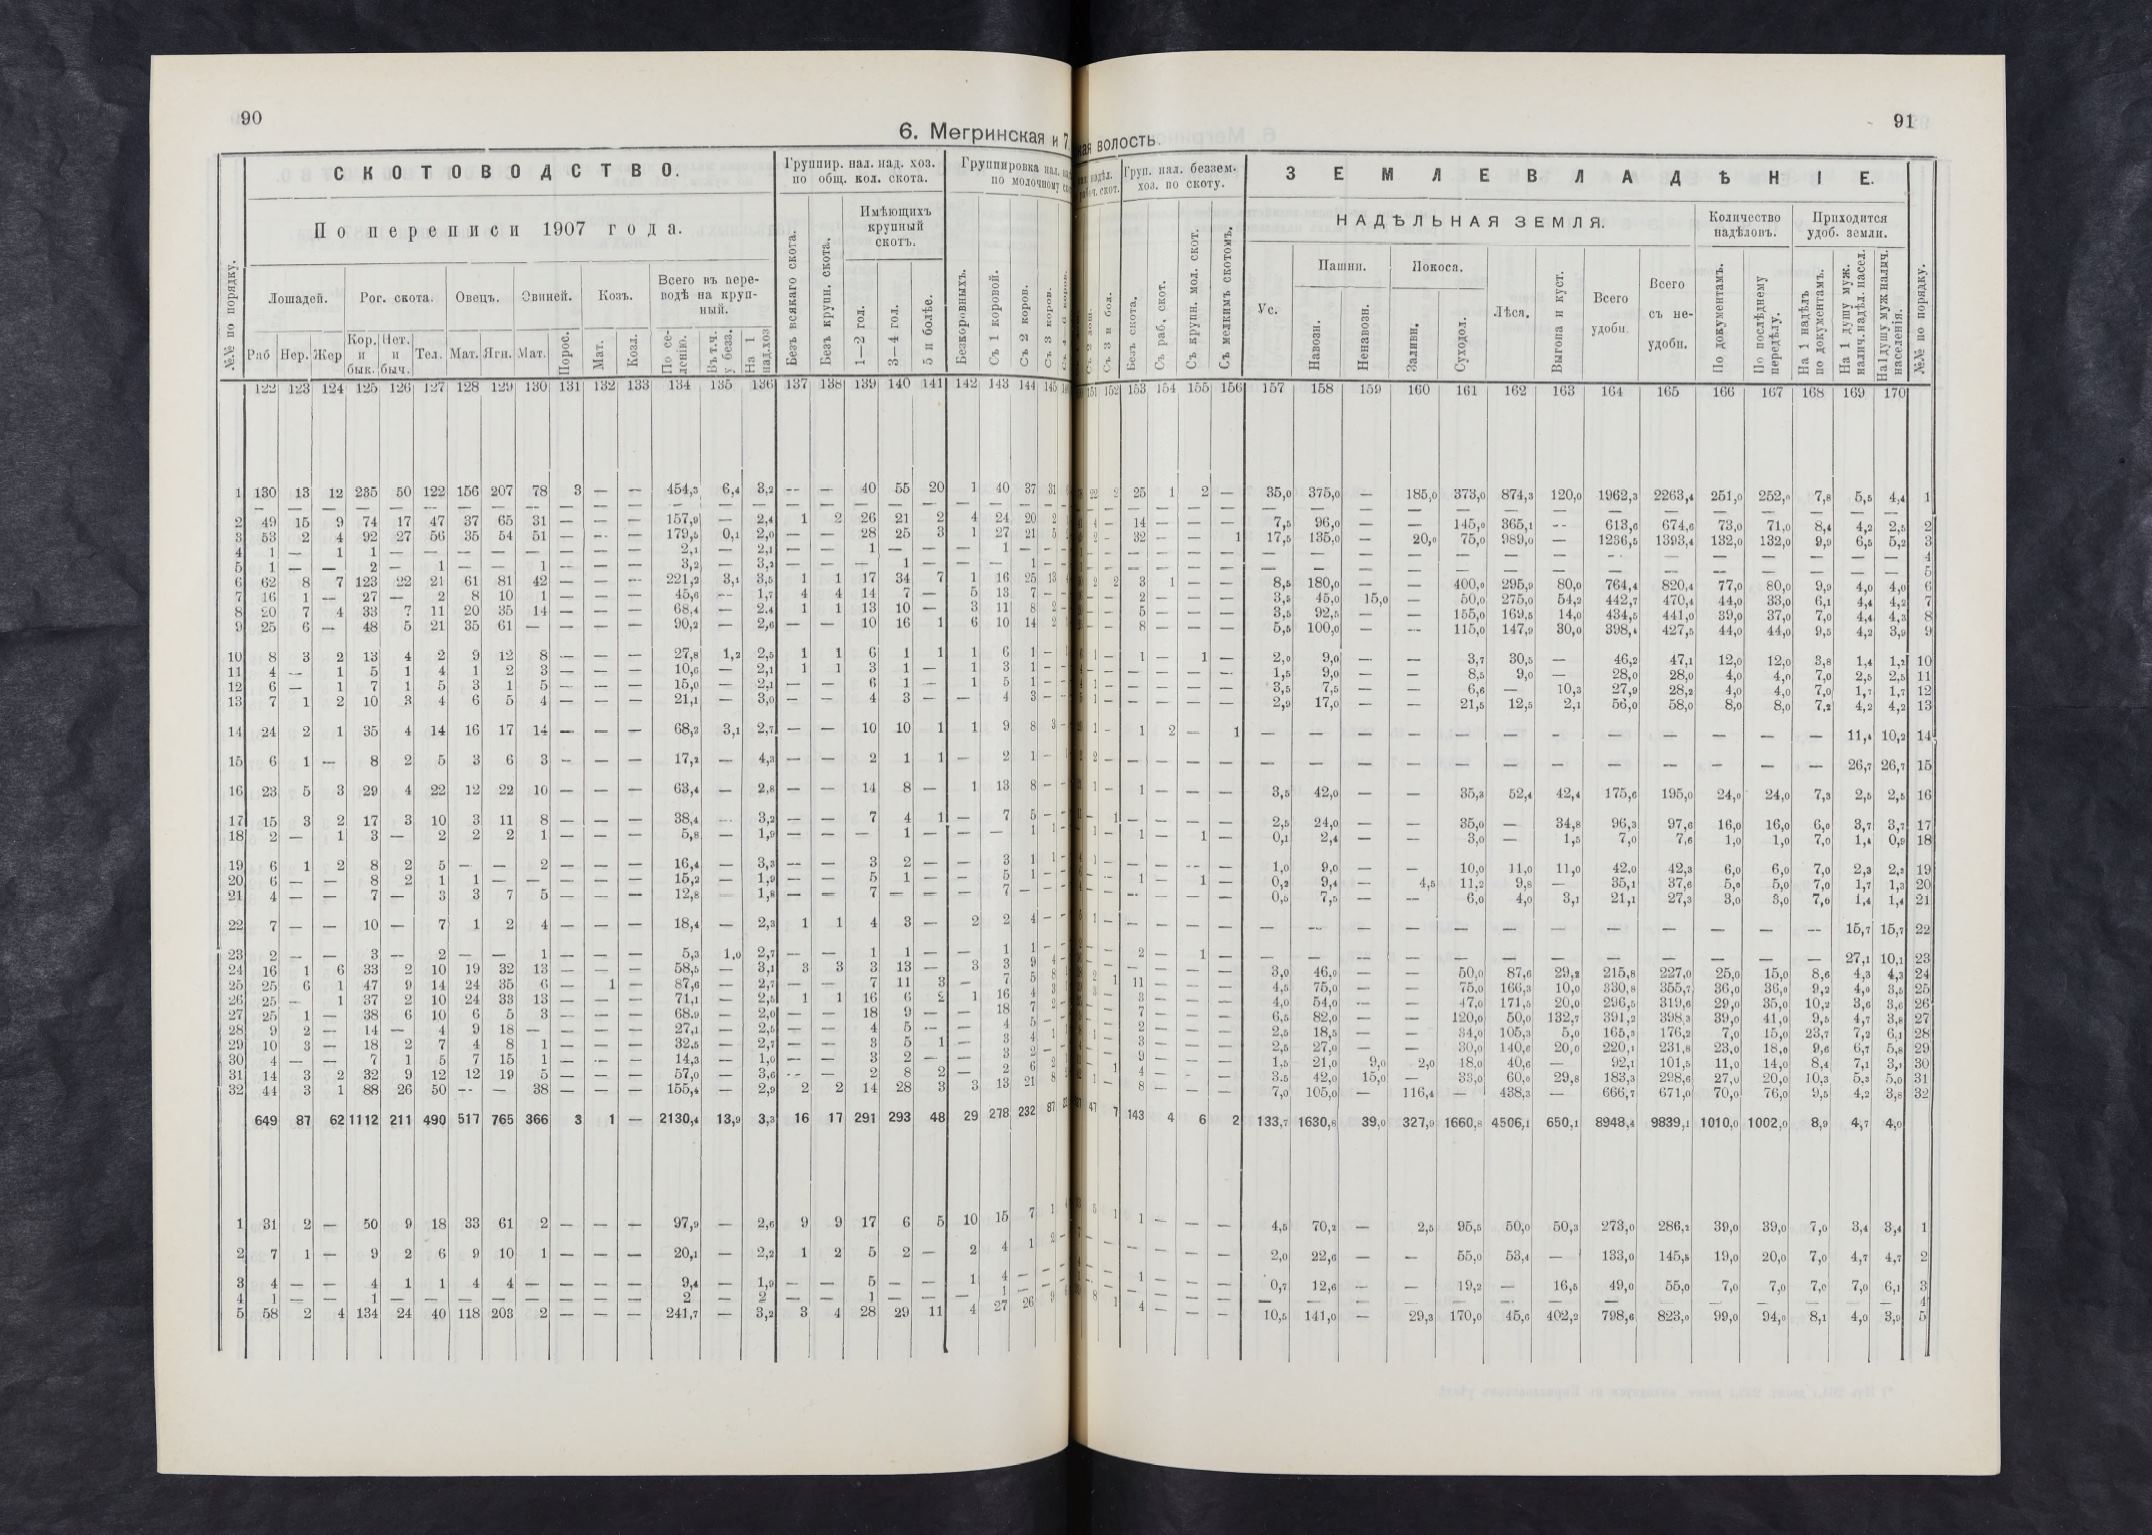 90
91
6. Мегринская и 7.
ная волость.
СКОТОВОДСТВО.
Группир. нал. над. хоз. по общ. кол. скота.
Группировка нал.
по молочному
Груп. нал. беззем. хоз. по скоту.
ЗЕМЛЕВЛАДѢНІЕ.
По переписи 1907 года.
Имѣющихъ крупный скотъ.
НАДѢЛЬНАЯ ЗЕМЛЯ.
Количество надѣловъ.
Приходится удоб. земли.
№№ по порядку.
Лошадей.
Рог. скота.
Овецъ.
Свиней.
Козъ.
Всего въ переводѣ на крупный.
Пашни.
Покоса.
Раб Нер. Жер Кор. и бык. Нет. и быч. Тел. Мат. Ягн. Мат. Порос. Мат. Козл. По селенію. Въ т.ч. у безз. На 1 над.хоз
Безъ всякаго скота. Безъ крупн. скота. 1—2 гол. 3—4 гол. 5 и болѣе. Безкоровныхъ. Съ 1 коровой. Съ 2 коров. Съ 3 коров.
Съ 3 и бол. Безъ скота. Съ раб. скот. Съ крупн. мол. скот. Съ мелкимъ скотомъ.
Ус. Навозн. Ненавозн. Заливн. Суходол. Лѣса. Выгона и куст. Всего удобн. Всего съ неудобн. По документамъ. По послѣднему передѣлу. На 1 надѣлъ по документамъ. На 1 душу муж. налич. надѣл. насел. На 1 душу муж налич. населенія. №№ по порядку.
122 123 124 125 126 127 128 129 130 131 132 133 134 135 136 137 138 139 140 141 142 143 144 145
151 152 153 154 155 156 157 158 159 160 161 162 163 164 165 166 167 168 169 170
1 130 13 12 235 50 122 156 207 78 3 — — 454,3 6,4 3,2 — — 40 55 20 1 40 37 31
22 2 25 1 2 — 35,0 375,0 — 185,0 373,0 874,3 120,0 1962,3 2263,4 251,0 252,0 7,8 5,5 4,4 1
2 49 15 9 74 17 47 37 65 31 — — — 157,9 — 2,4 1 2 26 21 2 4 24 20 2
4 — 14 — — — 7,5 96,0 — — 145,0 365,1 — 613,6 674,6 73,0 71,0 8,4 4,2 2,5 2
3 53 2 4 92 27 56 35 54 51 — — — 179,5 0,1 2,0 — — 28 25 3 1 27 21 5
2 — 32 — — 1 17,5 135,0 — 20,0 75,0 989,0 — 1236,5 1393,4 132,0 132,0 9,9 6,5 5,2 3
4 1 — 1 1 — — — — — — — — 2,1 — 2,1 — — 1 — — — 1 — —
— — — — — — — — — — — — — — — — — — 4
5 1 — — 2 — 1 — — 1 — — — 3,2 — 3,2 — — — 1 — — — 1 —
— — — — — — — — — — — — — — — — — — 5
6 62 8 7 123 22 21 61 81 42 — — — 221,2 3,1 3,5 1 1 17 34 7 1 16 25 13
2 2 3 1 — — 8,5 180,0 — — 400,0 295,9 80,0 764,4 820,4 77,0 80,0 9,9 4,0 4,0 6
7 16 1 — 27 — 2 8 10 1 — — — 45,6 — 1,7 4 4 14 7 — 5 13 7 —
— — 2 — — — 3,5 45,0 15,0 — 50,0 275,0 54,2 442,7 470,4 44,0 33,0 6,1 4,4 4,2 7
8 20 7 4 33 7 11 20 35 14 — — — 68,4 — 2,4 1 1 13 10 — 3 11 8 2
— — 5 — — — 3,5 92,5 — — 155,0 169,5 14,0 434,5 441,0 39,0 37,0 7,0 4,4 4,3 8
9 25 6 — 48 5 21 35 61 — — — — 90,2 — 2,6 — — 10 16 1 6 10 14 2
— — 8 — — — 5,5 100,0 — — 115,0 147,9 30,0 398,4 427,5 44,0 44,0 9,5 4,2 3,9 9
10 8 3 2 13 4 2 9 12 8 — — — 27,8 1,2 2,5 1 1 6 1 1 1 6 1 —
1 — 1 — 1 — 2,0 9,0 — — 3,7 30,5 — 46,2 47,1 12,0 12,0 3,8 1,4 1,2 10
11 4 — 1 5 1 4 1 2 3 — — — 10,6 — 2,1 1 1 3 1 — 1 3 1 —
— — — — — — 1,5 9,0 — — 8,5 9,0 — 28,0 28,0 4,0 4,0 7,0 2,5 2,5 11
12 6 — 1 7 1 5 3 1 5 — — — 15,0 — 2,1 — — 6 1 — 1 5 1 —
1 — — — — — 3,5 7,5 — — 6,6 — 10,3 27,9 28,2 4,0 4,0 7,0 1,7 1,7 12
13 7 1 2 10 3 4 6 5 4 — — — 21,1 — 3,0 — — 4 3 — — 4 3 —
1 — — — — — 2,9 17,0 — — 21,5 12,5 2,1 56,0 58,0 8,0 8,0 7,2 4,2 4,2 13
14 24 2 1 35 4 14 16 17 14 — — — 68,2 3,1 2,7 — — 10 10 1 1 9 8 3
1 — 1 2 — 1 — — — — — — — — — — — — 11,4 10,2 14
15 6 1 — 8 2 5 3 6 3 — — — 17,2 — 4,3 — — 2 1 1 — 2 1 —
2 — — — — — — — — — — — — — — — — — 26,7 26,7 15
16 23 5 3 29 4 22 12 22 10 — — — 63,4 — 2,8 — — 14 8 — 1 13 8 —
1 — 1 — — — 3,5 42,0 — — 35,3 52,4 42,4 175,6 195,0 24,0 24,0 7,3 2,5 2,5 16
17 15 3 2 17 3 10 3 11 8 — — — 38,4 — 3,2 — — 7 4 1 — 7 5 —
— 1 — — — — 2,5 24,0 — — 35,0 — 34,8 96,3 97,6 16,0 16,0 6,0 3,7 3,7 17
18 2 — 1 3 — 2 2 2 1 — — — 5,8 — 1,9 — — — 1 — — — 1 1
1 — 1 — 1 — 0,1 2,4 — — 3,0 — 1,5 7,0 7,6 1,0 1,0 7,0 1,4 0,9 18
19 6 1 2 8 2 5 — — 2 — — — 16,4 — 3,3 — — 3 2 — — 3 1 1
1 — — — — — 1,0 9,0 — — 10,0 11,0 11,0 42,0 42,3 6,0 6,0 7,0 2,3 2,3 19
20 6 — — 8 2 1 1 — — — — — 15,2 — 1,9 — — 5 1 — — 5 1 —
— — 1 — 1 — 0,2 9,4 — 4,5 11,2 9,8 — 35,1 37,6 5,0 5,0 7,0 1,7 1,3 20
21 4 — — 7 — 3 3 7 5 — — — 12,8 — 1,8 — — 7 — — — 7 — —
— — — — — — 0,5 7,5 — — 6,0 4,0 3,1 21,1 27,3 3,0 3,0 7,0 1,4 1,4 21
22 7 — — 10 — 7 1 2 4 — — — 18,4 — 2,3 1 1 4 3 — 2 2 4 —
1 — — — — — — — — — — — — — — — — — 15,7 15,7 22
23 2 — — 3 — 2 — — 1 — — — 5,3 1,0 2,7 — — 1 1 — — 1 1 —
— — 2 — 1 — — — — — — — — — — — — — 27,1 10,1 23
24 16 1 6 33 2 10 19 32 13 — — — 58,5 — 3,1 3 3 3 13 — 3 3 9 4
— — — — — — 3,0 46,0 — — 50,0 87,6 29,2 215,8 227,0 25,0 15,0 8,6 4,3 4,3 24
25 25 6 1 47 9 14 24 35 6 — 1 — 87,6 — 2,7 — — 7 11 3 — 7 5 8
2 1 11 — — — 4,5 75,0 — — 75,0 166,3 10,0 330,8 355,7 36,0 36,0 9,2 4,0 3,5 25
26 25 — 1 37 2 10 24 33 13 — — — 71,1 — 2,5 1 1 16 6 2 1 16 4 3
3 — 3 — — — 4,0 54,0 — — 47,0 171,5 20,0 296,5 319,6 29,0 35,0 10,2 3,6 3,6 26
27 25 1 — 38 6 10 6 5 3 — — — 68,9 — 2,0 — — 18 9 — — 18 7 2
— — 7 — — — 6,5 82,0 — — 120,0 50,0 132,7 391,2 398,3 39,0 41,0 9,5 4,7 3,8 27
28 9 2 — 14 — 4 9 18 — — — — 27,1 — 2,5 — — 4 5 — — 4 5 —
— — 2 — — — 2,5 18,5 — — 34,0 105,3 5,0 165,3 176,2 7,0 15,0 23,7 7,2 6,1 28
29 10 3 — 18 2 7 4 8 1 — — — 32,5 — 2,7 — — 3 5 1 — 3 4 1
1 — 3 — — — 2,5 27,0 — — 30,0 140,6 20,0 220,1 231,8 23,0 18,0 9,6 6,7 5,8 29
30 4 — — 7 1 5 7 15 1 — — — 14,3 — 1,0 — — 3 2 — — 3 2 —
— — 9 — — — 1,5 21,0 9,0 2,0 18,0 40,6 — 92,1 101,5 11,0 14,0 8,4 7,1 3,1 30
31 14 3 2 32 9 12 12 19 5 — — — 57,0 — 3,6 — — 2 8 2 — 2 6 2
— — 4 — — — 3,5 42,0 15,0 — 33,0 60,0 29,8 183,3 298,6 27,0 20,0 10,3 5,3 5,0 31
32 44 3 1 88 26 50 — — 38 — — — 155,4 — 2,9 2 2 14 28 3 3 13 21 8
1 — 8 — — — 7,0 105,0 — 116,4 — 438,3 — 666,7 671,0 70,0 76,0 9,5 4,2 3,8 32
649 87 62 1112 211 490 517 765 366 3 1 — 2130,4 13,9 3,3 16 17 291 293 48 29 278 232 87
47 7 143 4 6 2 133,7 1630,8 39,0 327,9 1660,8 4506,1 650,1 8948,4 9839,1 1010,0 1002,0 8,9 4,7 4,0
1 31 2 — 50 9 18 33 61 2 — — — 97,9 — 2,6 9 9 17 6 5 10 15 7 1
5 1 1 — — — 4,5 70,2 — 2,5 95,5 50,0 50,3 273,0 286,2 39,0 39,0 7,0 3,4 3,4 1
2 7 1 — 9 2 6 9 10 1 — — — 20,1 — 2,2 1 2 5 2 — 2 4 1 2
— — — — — — 2,0 22,6 — — 55,0 53,4 — 133,0 145,5 19,0 20,0 7,0 4,7 4,7 2
3 4 — — 4 1 1 4 4 — — — — 9,4 — 1,9 — — 5 — — 1 4 — —
— — 1 — — — 0,7 12,6 — — 19,2 — 16,5 49,0 55,0 7,0 7,0 7,0 7,0 6,1 3
4 1 — — 1 — — — — — — — — 2 — 2 — — 1 — — — 1 — —
— — — — — — — — — — — — — — — — — — — — 4
5 58 2 4 134 24 40 118 203 2 — — — 241,7 — 3,2 3 4 28 29 11 4 27 26 9
8 1 4 — — — 10,5 141,0 — 29,3 170,0 45,6 402,2 798,6 823,0 99,0 94,0 8,1 4,0 3,9 5